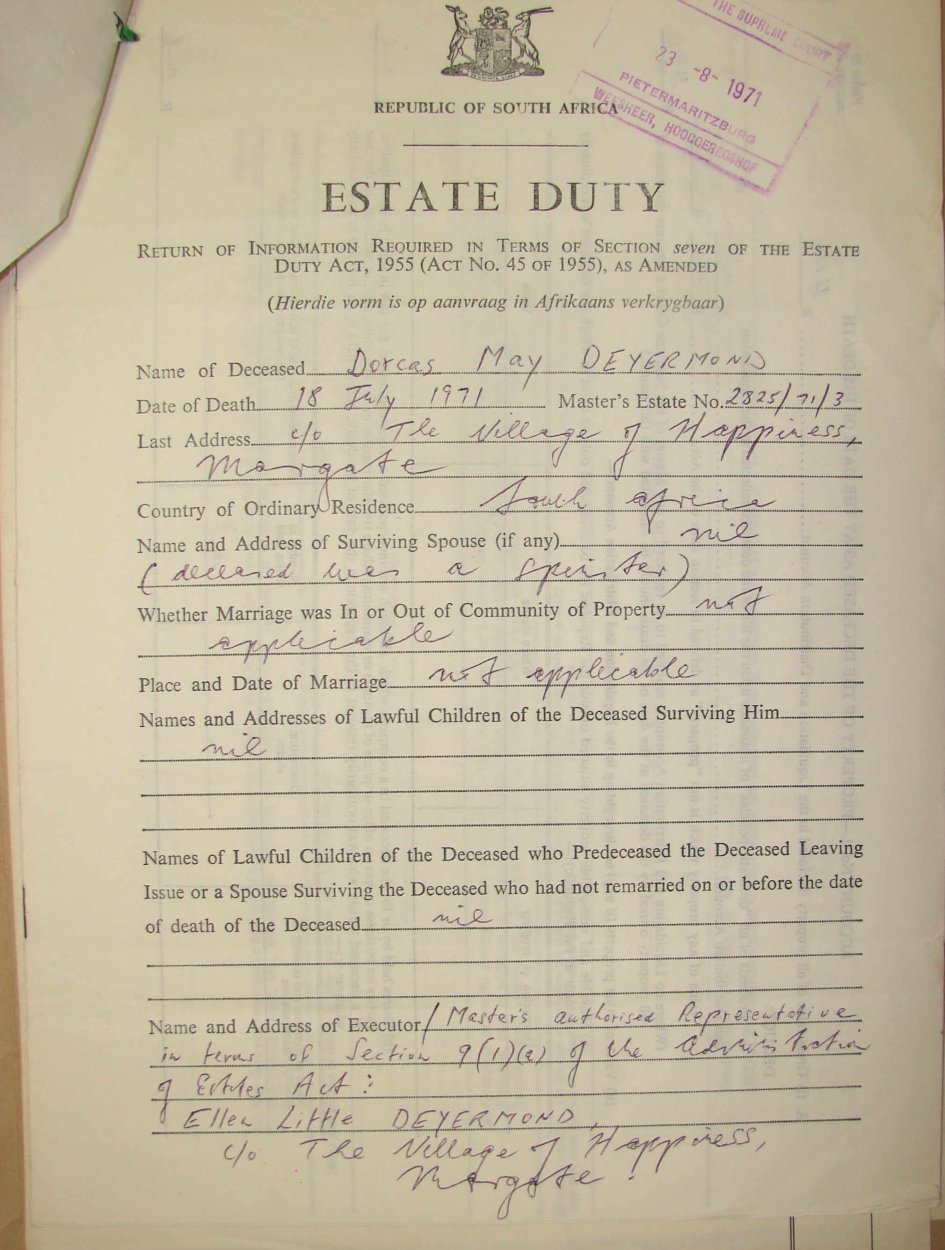 THE SUPREME COURT
23 -8- 1971
PIETERMARITZBURG
WEESHEER, HOOGGEREGSHOF
REPUBLIC OF SOUTH AFRICA
ESTATE DUTY
RETURN OF INFORMATION REQUIRED IN TERMS OF SECTION seven OF THE ESTATE
DUTY ACT, 1955 (ACT NO. 45 OF 1955), AS AMENDED
(Hierdie vorm is op aanvraag in Afrikaans verkrygbaar)
Name of Deceased Dorcas May DEYERMOND
Date of Death 18 July 1971 Master's Estate No. 2825/71/3
Last Address c/o The Village of Happiness,
Margate
Country of Ordinary Residence South Africa
Name and Address of Surviving Spouse (if any) nil
(deceased was a spinster)
Whether Marriage was In or Out of Community of Property not
applicable
Place and Date of Marriage not applicable
Names and Addresses of Lawful Children of the Deceased Surviving Him
nil
Names of Lawful Children of the Deceased who Predeceased the Deceased Leaving
Issue or a Spouse Surviving the Deceased who had not remarried on or before the date
of death of the Deceased nil
Name and Address of Executor/Master's authorised Representative
in terms of Section 9(1)(a) of the Administration
of Estates Act:
Ellen Little DEYERMOND,
c/o The Village of Happiness,
Margate.